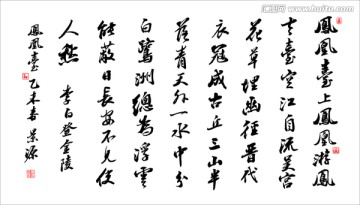 鳳凰臺上鳳凰游鳳
去臺空江自流吴宫
花草埋幽徑晉代
衣冠成古丘三山半
落青天外一水中分
白鷺洲總為浮雲
能蔽日長安不見使
人愁 李白登金陵
鳳凰臺 乙未春 景源